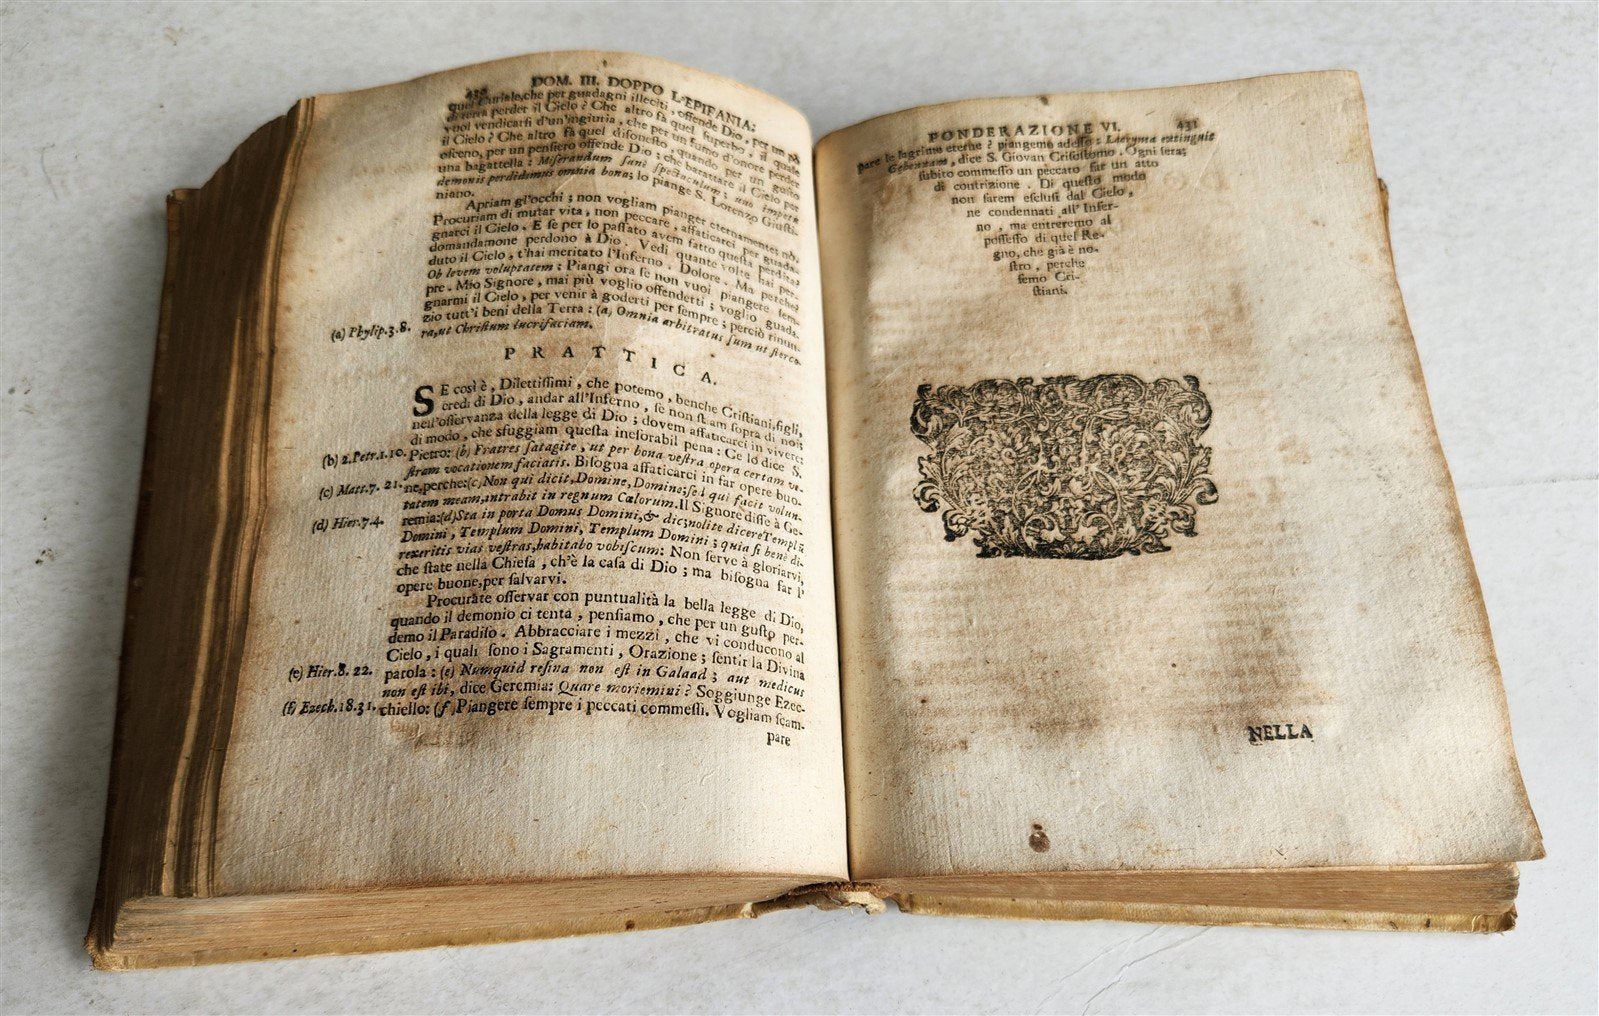 430 DOM. III. DOPPO L'EPIFANIA:
quel Curiale, che per guadagni illeciti, offende Dio, per un pò
di terra perder il Cielo? Che altro fà quel superbo, il quale
vuol vendicarsi d'un'ingiuria, che per un fumo d'onore perde
il Cielo? Che altro fà quel disonesto, quando per un gusto
osceno, per un pensiero offende Dio; che barattare il Cielo per
una bagattella: Miserandum sanè spectaculum; uno impetu
demonis perdidimus omnia bona; lo piange S. Lorenzo Giusti-
niano.
Apriam gl'occhi; non vogliam pianger eternamente; nò.
Procuriam di mutar vita, non peccare, affaticarci per guada-
gnarci il Cielo. E se per lo passato avem fatto questa perdita,
domandamone perdono à Dio. Vedi quante volte hai per-
duto il Cielo, t'hai meritato l'Inferno. Dolore. Ma perche?
Ob levem voluptatem: Piangi ora se non vuoi piangere sem-
pre. Mio Signore, mai più voglio offenderti; voglio guada-
gnarmi il Cielo, per venir à goderti per sempre; perciò rinun-
zio tutt'i beni della Terra: (a) Omnia arbitratus sum ut sterco-
(a) Phylip.3.8. ra, ut Christum lucrifaciam.
PRATTICA.
SE così è, Dilettissimi, che potemo, benche Cristiani, figli,
credi di Dio, andar all'Inferno, se non stiam sopra di noi;
nell'osservanza della legge di Dio; dovem affaticarci in vivere
di modo, che sfuggiam questa inesorabil pena: Ce lo dice S.
(b) 2.Petr.1.10. Pietro: (b) Fratres satagite, ut per bona vestra opera certam ve-
stram vocationem faciatis. Bisogna affaticarci in far opere buo-
(c) Matt.7. 21. ne, perche: (c) Non qui dicit, Domine, Domine; sed qui facit volun-
tatem meam, intrabit in regnum Cælorum. Il Signore disse à Ge-
(d) Hier.7.4. remia: (d) Sta in porta Domus Domini, & dic; nolite dicere Templũ
Domini, Templum Domini, Templum Domini; quia si benè di-
rexeritis vias vestras, habitabo vobiscum: Non serve à gloriarvi,
che state nella Chiesa, ch'è la casa di Dio; ma bisogna far l'
opere buone, per salvarvi.
Procurate osservar con puntualità la bella legge di Dio,
quando il demonio ci tenta, pensiamo, che per un gusto per-
demo il Paradiso. Abbracciare i mezzi, che vi conducono al
Cielo, i quali sono i Sagramenti, Orazione; sentir la Divina
(e) Hier.8. 22. parola: (e) Numquid resina non est in Galaad; aut medicus
non est ibi, dice Geremia: Quare moriemini? Soggiunge Ezec-
(f) Ezech.18.31. chiello: (f) Piangere sempre i peccati commessi. Vogliam scam-
pare
PONDERAZIONE VI. 431
pare le lagrime eterne? piangemo adesso: Lacryma extinguit
Gehennam, dice S. Giovan Crisostomo. Ogni sera;
subito commesso un peccato far un atto
di contrizione. Di questo modo
non sarem esclusi dal Cielo,
ne condennati all'Infer-
no, ma entreremo al
possesso di quel Re-
gno, che già è no-
stro, perche
semo Cri-
stiani.
NELLA